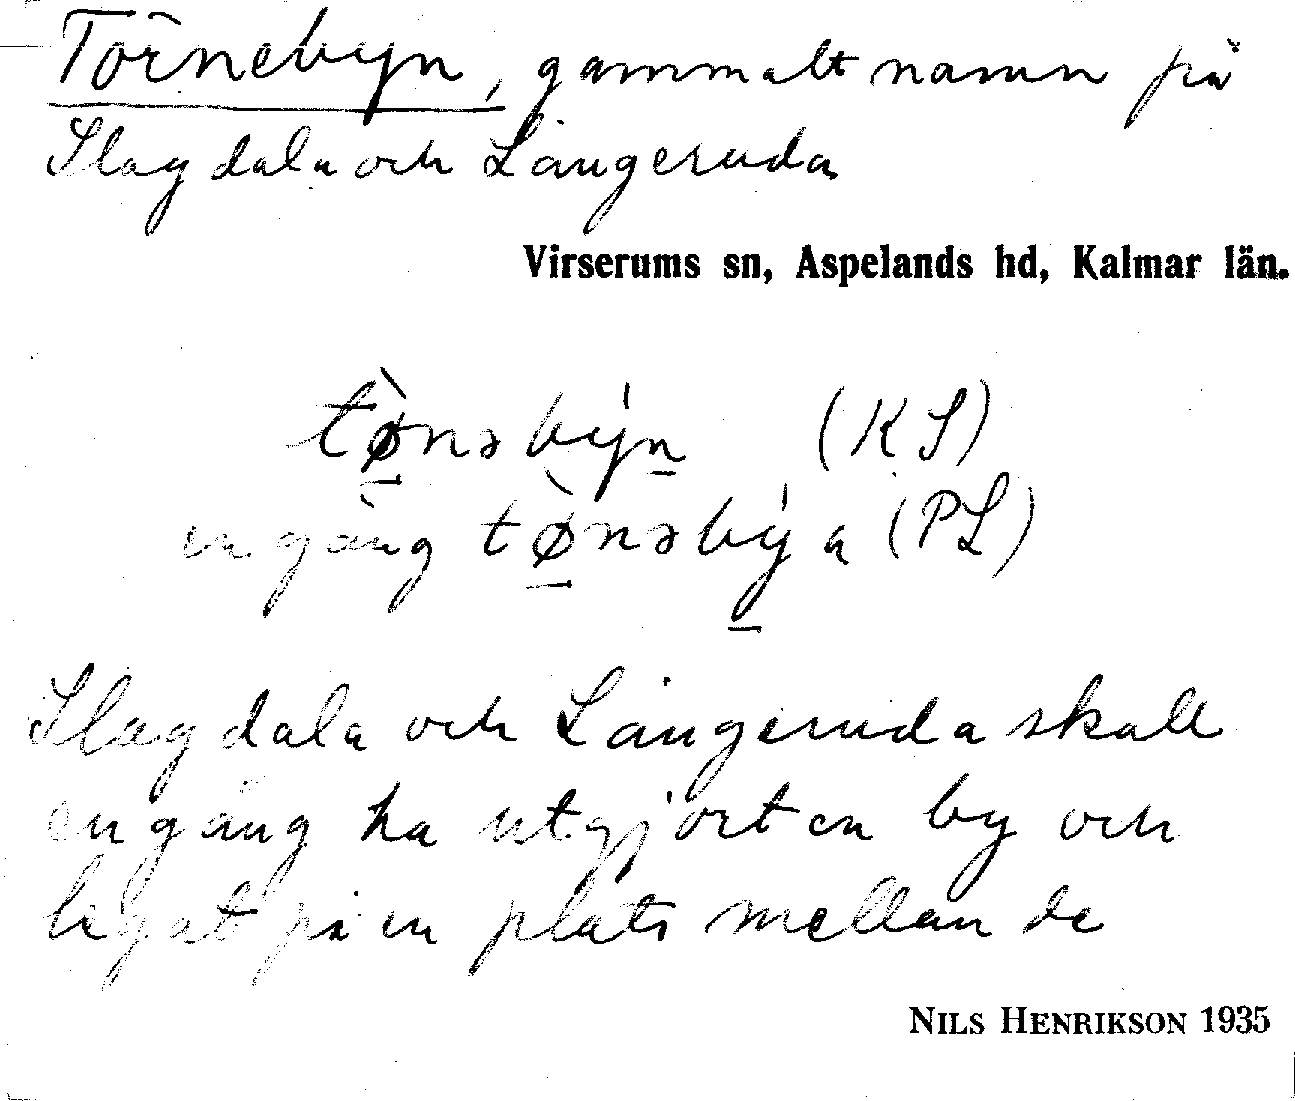 Törnebyn, gammalt namn på
Slagdala och Långeruda
Virserums sn, Aspelands hd, Kalmar län.
tø̀nəbýn (KS)
en gång tø̀nəbýa (PL)
Slagdala och Långeruda skall
en gång ha utgjort en by och
legat på en plats mellan de
NILS HENRIKSON 1935